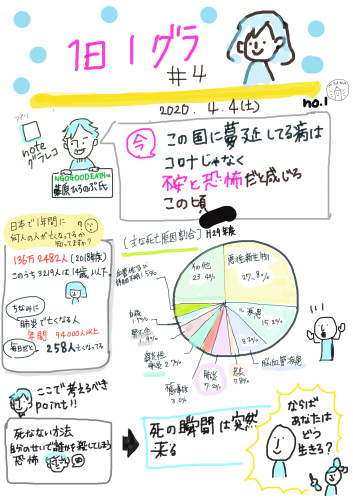 1日1グラ
#4
2020.4.4(土)
no.1
note
グラレコ
NGOGOODEATHs
藤原ひろのぶ氏
今
この国に蔓延してる病は
コロナじゃなく
不安と恐怖だと感じる
この頃
日本で1年間に
何人の人が亡くなってるか
知ってますか?
136万2482人(2018年度)
このうち3219人は14歳以下。
ちなみに
肺炎で亡くなる人
年間 94000人以上
毎日だと 258人亡くなってる
[主な死亡原因割合] H29年度
悪性新生物
27.8%
心疾患
15.2%
8.2%
脳血管疾患
老衰
7.6%
肺炎
7.2%
不慮の事故
3.0%
誤嚥性
肺炎 2.7%
腎不全
1.9%
自殺
1.5%
その他
23.4%
ここで考えるべき
point!!
死なない方法
自分のせいで誰かを殺してしまう
恐怖
死の瞬間は突然
来る
ならば
あなたは
どう
生きる?